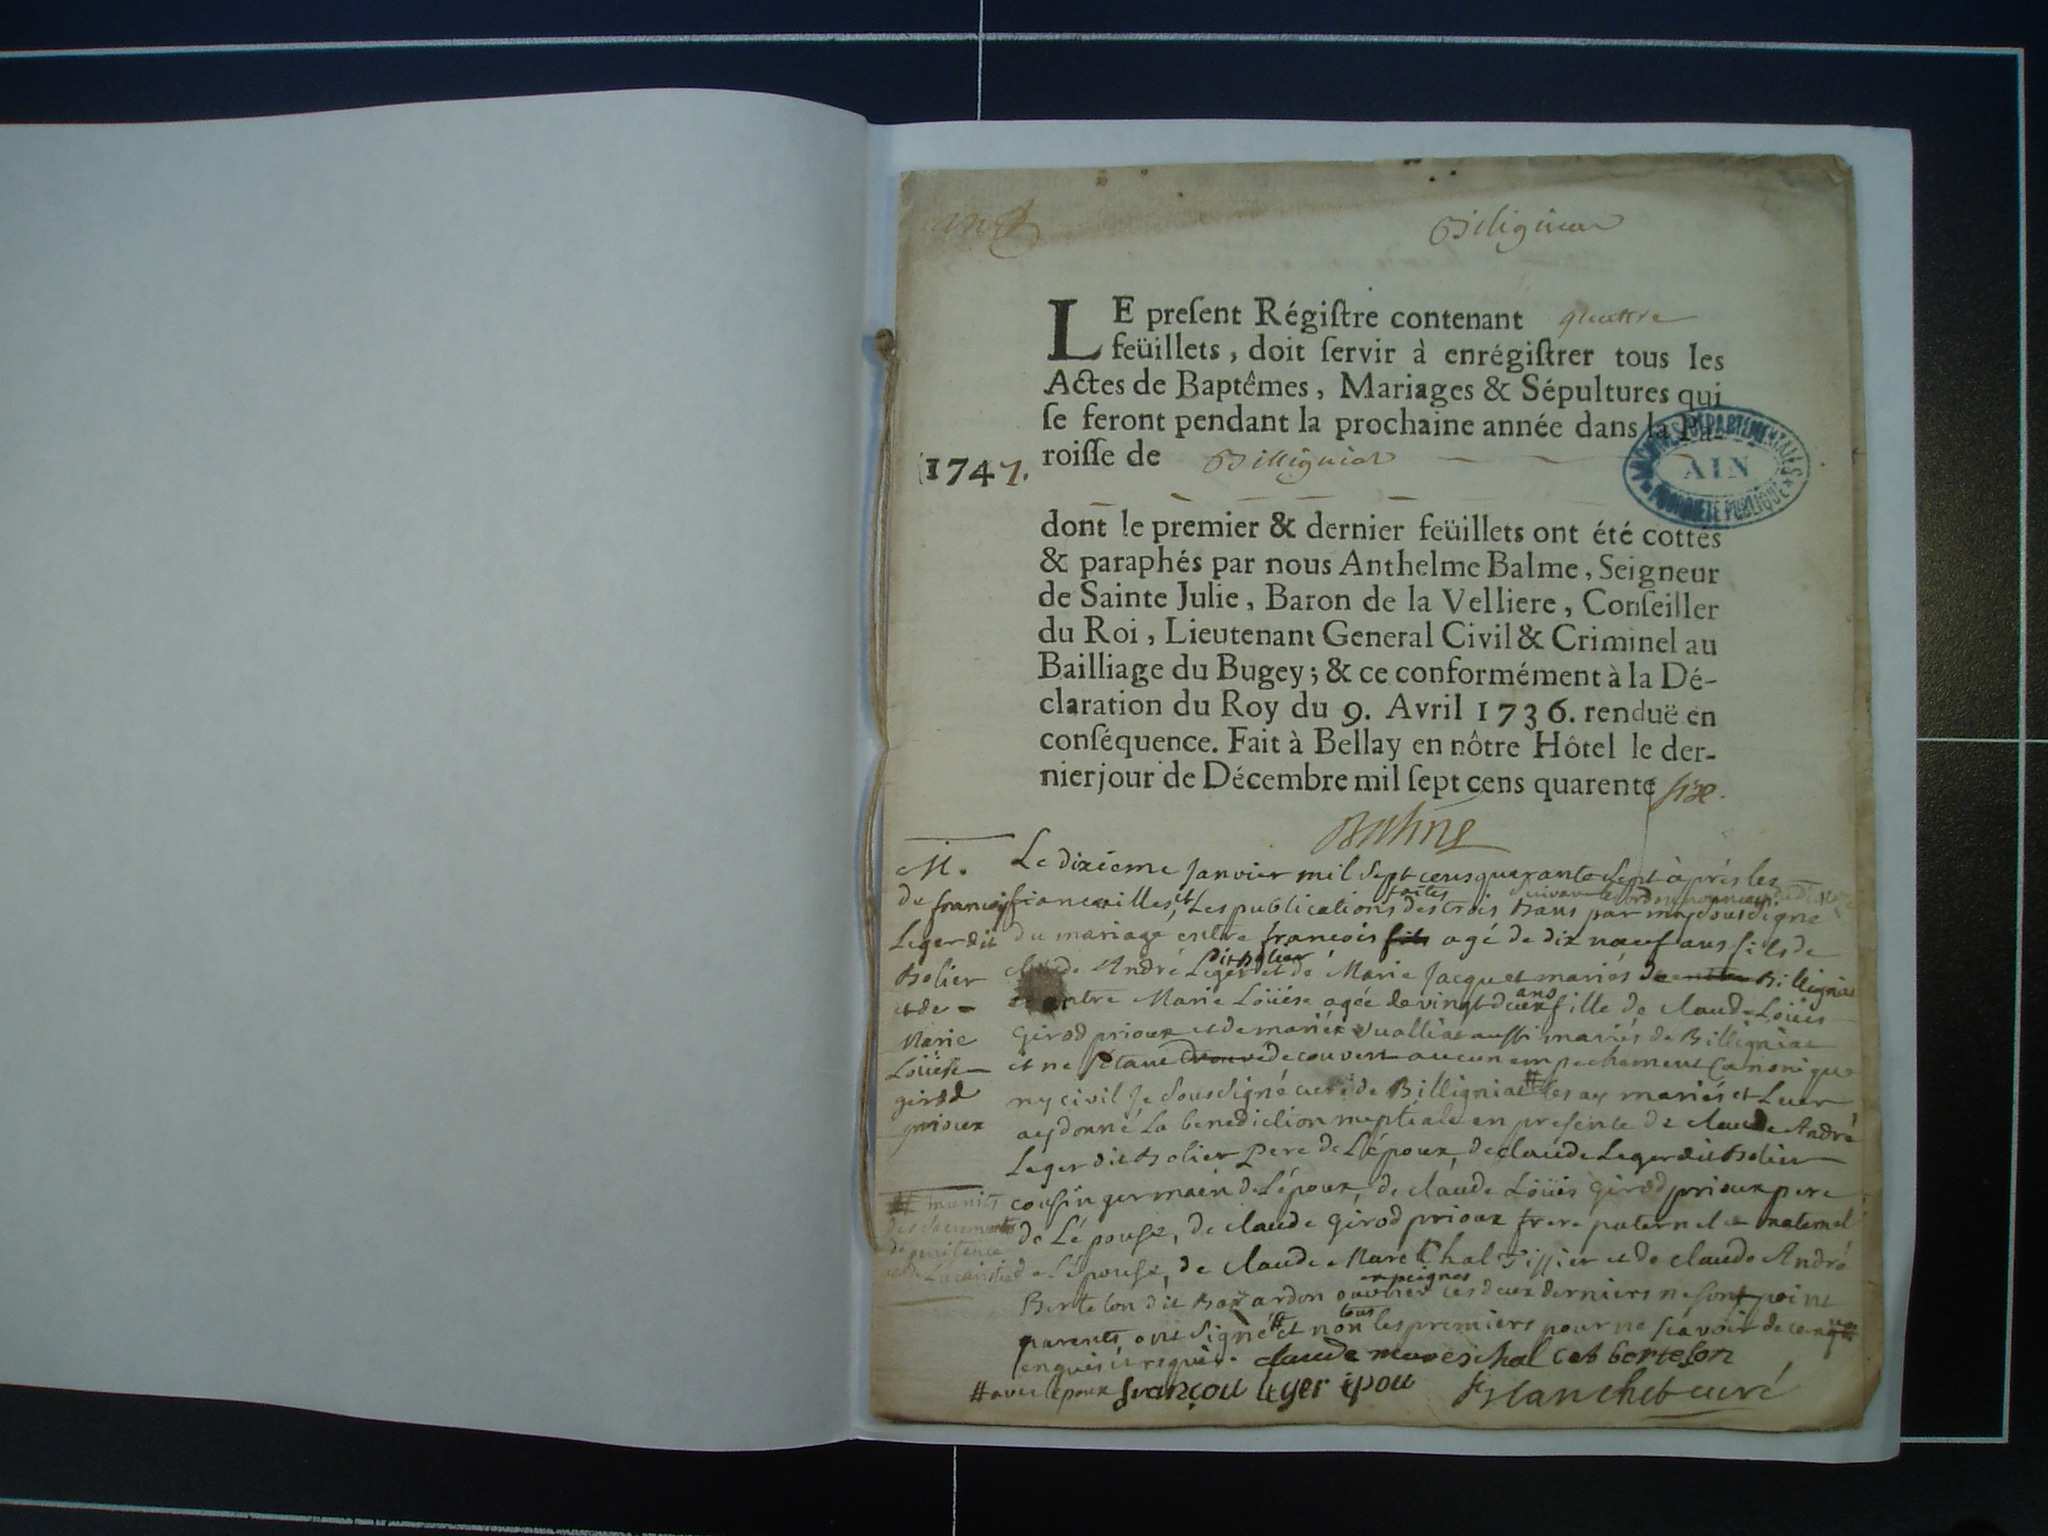 Billigniat
LE preſent Régiſtre contenant quattre
feüillets, doit ſervir à enrégiſtrer tous les
Actes de Baptêmes, Mariages & Sépultures qui
ſe feront pendant la prochaine année dans la Pa-
1747. roiſſe de Billigniat
ARCHIVES DÉPARTEMENTALES
AIN
PROPRIÉTÉ PUBLIQUE
dont le premier & dernier feüillets ont été cottés
& paraphés par nous Anthelme Balme, Seigneur
de Sainte Julie, Baron de la Velliere, Conſeiller
du Roi, Lieutenant General Civil & Criminel au
Bailliage du Bugey; & ce conformément à la Dé-
claration du Roy du 9. Avril 1736. renduë en
conſéquence. Fait à Bellay en nôtre Hôtel le der-
nier jour de Décembre mil ſept cens quarente six.
Balme
M.
de françois
Leger dit
Bolier
et de
Marie
Loüise
girod
prioux
Le dixiéme Janvier mil Sept cens quarante Sept àprés les
fiancailles et Les publications faites des trois Bans par moy sousigné
du mariage entre françois agé de dix nœuf ans fils de
André Leger dit Bolier et de Marie Jacquet mariés de Billigniat
entre Marie Loüise agée de vingt deux ans fille de claude Loüis
Girod prioux et de mariés aussi mariés de Billigniat
et ne s'étant découvert aucun empechement Canonique
ny civil Je Sousigné curé de Billigniat # les ay mariés et Leur
ay donné La benediction nuptiale en presence de claude André
Leger dit Bolier Pere de L'époux, de claude Leger dit Bolier
# munits
des sacrements
de penitence
cousin germain de L'époux, de claude Loüis Girod prioux pere
de L'épouse, de claude Girod prioux frere paternel et maternel
de L'épouse, de claude Maréchal et de claude André
Bertelon dit ces deux derniers ne sont point
parents ont Signé # et non tous les premiers pour ne sçavoir de ce
enquis et requis. claude mareschal c a bertelon
# avec l'epoux françou leger epou Blanchet curé